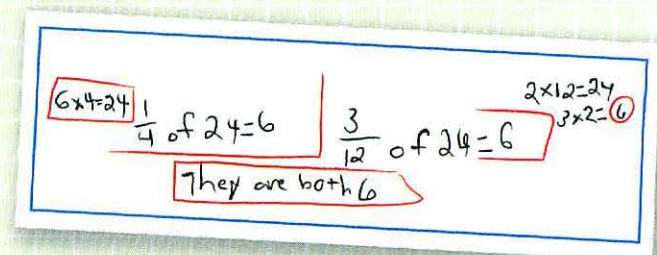 6x4=24
1/4 of 24=6
3/12 of 24=6
2x12=24
3x2=6
They are both 6